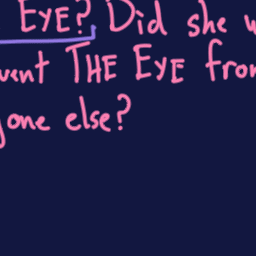 EYE? Did she w
vent THE EYE from
yone else?